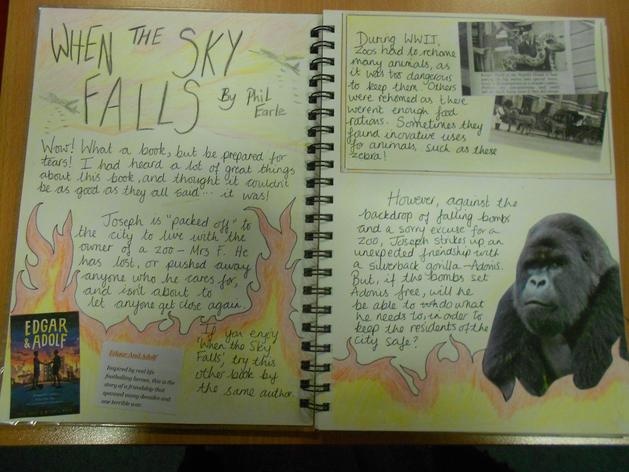 WHEN THE SKY
FALLS
By Phil
Earle
Wow! What a book, but be prepared for
tears! I had heard a lot of great things
about this book, and thought it couldn't
be as good as they all said... it was!
Joseph is "packed off" to
the city to live with the
owner of a zoo - Mrs F. He
has lost, or pushed away
anyone who he cares for,
and isn't about to
let anyone get close again.
EDGAR
& ADOLF
Edgar And Adolf
Inspired by real life
footballing heroes, this is the
story of a friendship that
spanned many decades and
one terrible war.
If you enjoy
'When the Sky
Falls', try this
other book by
the same author.
During WWII,
zoos had to rehome
many animals, as
it was too dangerous
to keep them. Others
were rehomed as there
werent enough food
rations. Sometimes they
found inovative uses
for animals, such as these
zebra!
However, against the
backdrop of falling bombs
and a sorry excuse for a
zoo, Joseph strikes up an
unexpected friendship with
a silverback gorilla - Adonis.
But, if the bombs set
Adonis free, will he
be able to do what
he needs to, in order to
keep the residents of the
city safe?